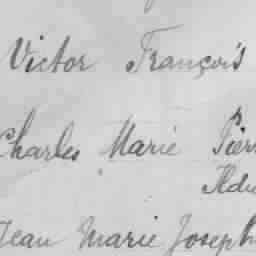 Victor François
Charles Marie
Jean Marie Joseph